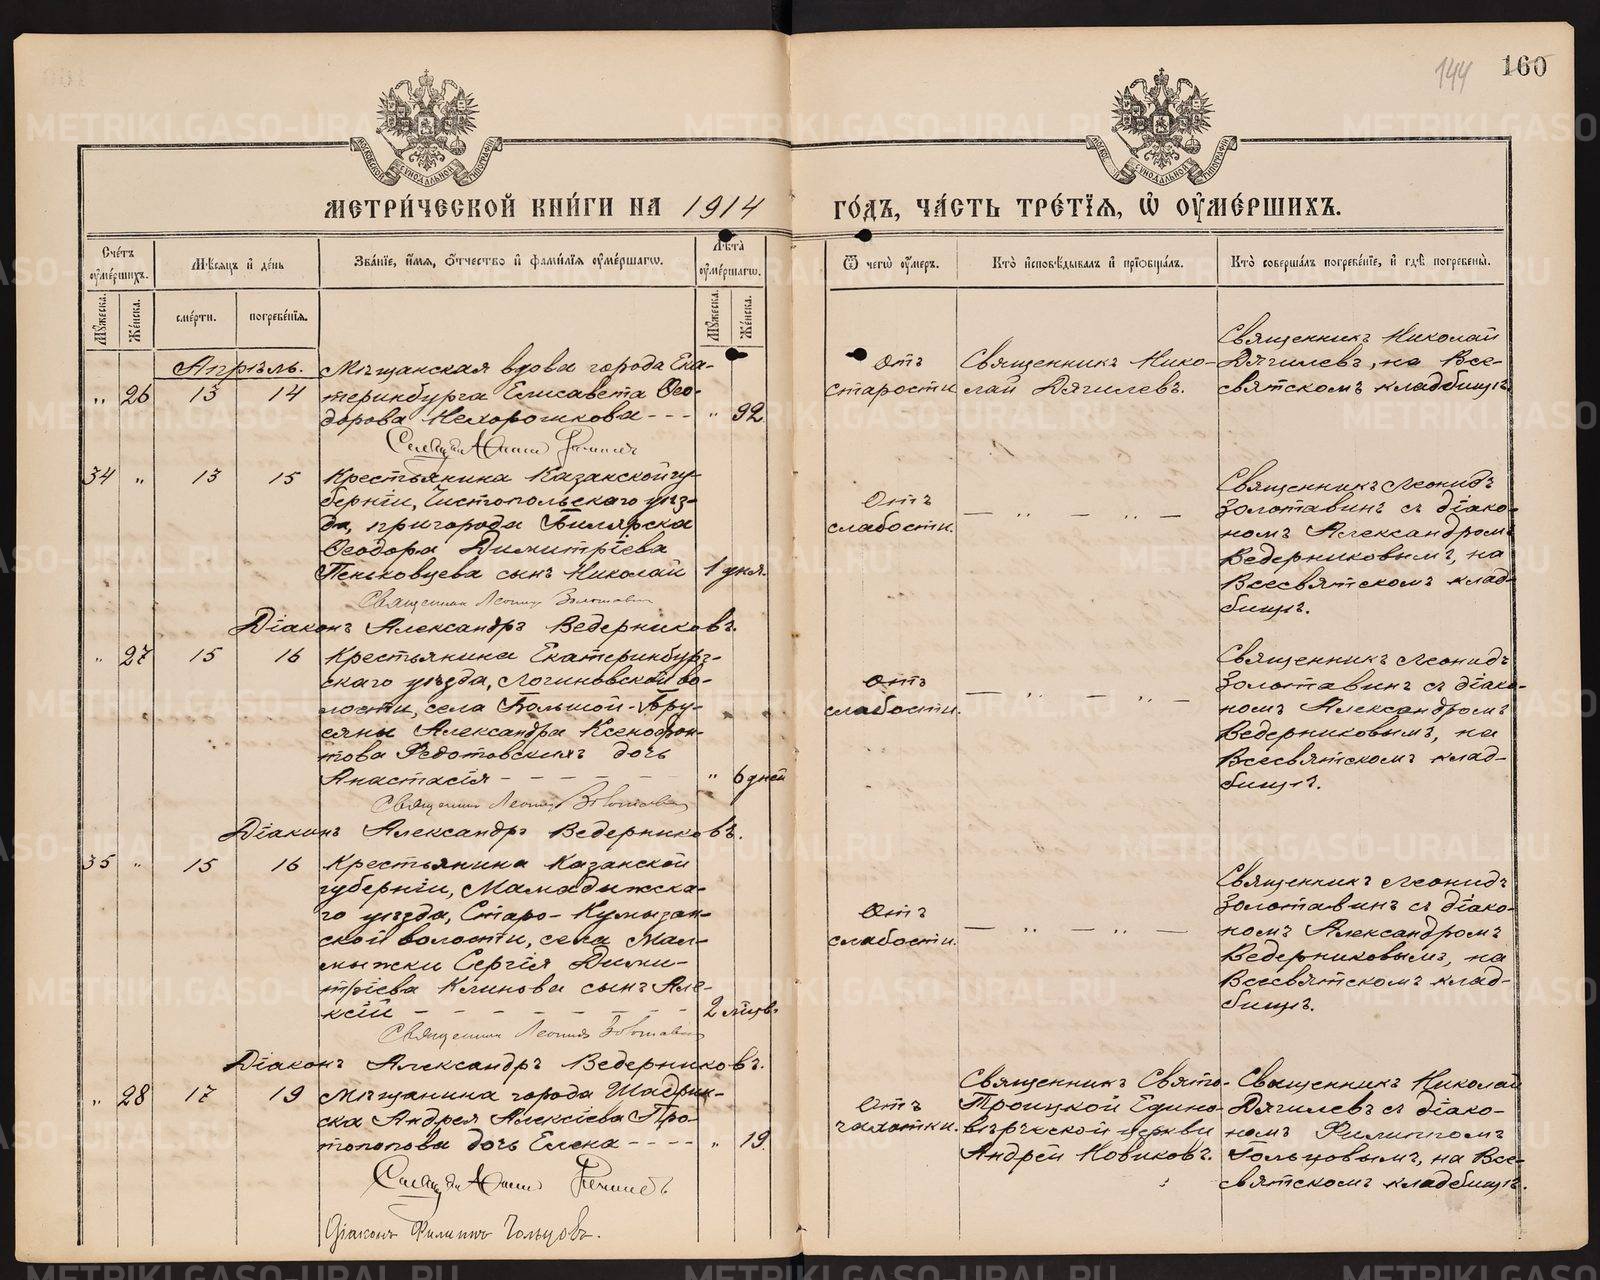 144 160
МЕТРИ́ЧЕСКОЙ КНИ́ГИ НА 1914 ГО́ДЪ, ЧА́СТЬ ТРЕ́ТІЯ, Ѡ҆ ОУ҆МЕ́РШИХЪ.
Сче́тъ оу҆ме́ршихъ.
Мѣ́сяцъ и҆ де́нь
Зва́ніе, и҆́мя, ѻ҆́тчество и҆ фами́лія оу҆ме́ршагѡ.
Лѣ́та оу҆ме́ршагѡ.
Ѿ чегѡ̀ оу҆́меръ.
Кто̀ и҆сповѣ́дывалъ и҆ пріѡбща́лъ.
Кто̀ соверша́лъ погребе́ніе, и҆ гдѣ̀ погребены̀.
Мꙋ́жеска.
Же́нска.
сме́рти.
погребе́нія.
Мꙋ́жеска.
Же́нска.
Апрѣль.
„ 26 13 14
Мѣщанская вдова города Ека-
теринбурга Елисавета Ѳео-
дорова Нехорошкова - - - „ 92
Отъ
старости
Священникъ Нико-
лай Дягилевъ.
Священникъ Николай
Дягилевъ, на Все-
святскомъ кладбищѣ.
34 „ 13 15
Крестьянина Казанской гу-
берніи, Чистопольскаго уѣз-
да, пригорода Билярска
Ѳеодора Димитріева
Пеньковцева сынъ Николай 1 дня.
Священник Леонид Золотавин
Діаконъ Александръ Ведерниковъ.
Отъ
слабости.
— „ — „ —
Священникъ Леонидъ
Золотавинъ съ діако-
номъ Александромъ
Ведерниковымъ, на
Всесвятскомъ клад-
бищѣ.
„ 27 15 16
Крестьянина Екатеринбург-
скаго уѣзда, Логиновской во-
лости, села Большой-Бру-
сяны Александра Ксенофон-
това Федотовскихъ дочь
Анастасія - - - - - „ 6 дней
Священник Леонид Золотавин
Діаконъ Александръ Ведерниковъ.
Отъ
слабости.
— „ — „ —
Священникъ Леонидъ
Золотавинъ съ діако-
номъ Александромъ
Ведерниковымъ, на
Всесвятскомъ клад-
бищѣ.
35 „ 15 16
Крестьянина Казанской
губерніи, Мамадыжска-
го уѣзда, Старо-Кумазан-
ской волости, села Мал-
мыжки Сергія Дими-
тріева Климова сынъ Але-
ксій - - - - - - - 2 мѣсв.
Священник Леонид Золотавин
Діаконъ Александръ Ведерниковъ.
Отъ
слабости.
— „ — „ —
Священникъ Леонидъ
Золотавинъ съ діако-
номъ Александромъ
Ведерниковымъ, на
Всесвятскомъ клад-
бищѣ.
„ 28 17 19
Мѣщанина города Шадрин-
ска Андрея Алексіева Про-
топопова дочь Елена - - - - „ 19.
Діаконъ Филиппъ Гольцовъ.
Отъ
чахотки.
Священникъ Свято-
Троицкой Едино-
вѣрческой церкви
Андрей Новиковъ.
Священникъ Николай
Дягилевъ съ діако-
номъ Филиппомъ
Гольцовымъ, на Все-
святскомъ кладбищѣ.
METRIKI.GASO-URAL.RU